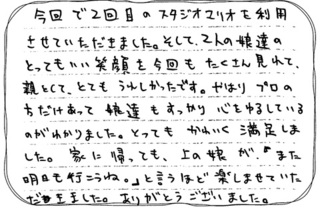 今回で2回目のスタジオマリオを利用
させていただきました。そして、2人の娘達の
とってもいい笑顔を今回もたくさん見れて、
親として、とてもうれしかったです。やはりプロの
ちだけあって娘達もすっかり心をゆるしている
のがわかりました。とってもかわいく満足しま
した。家に帰っても、上の娘が、「また
明日も行こうね。」と言うほど楽しませていた
だきました。ありがとうございました。